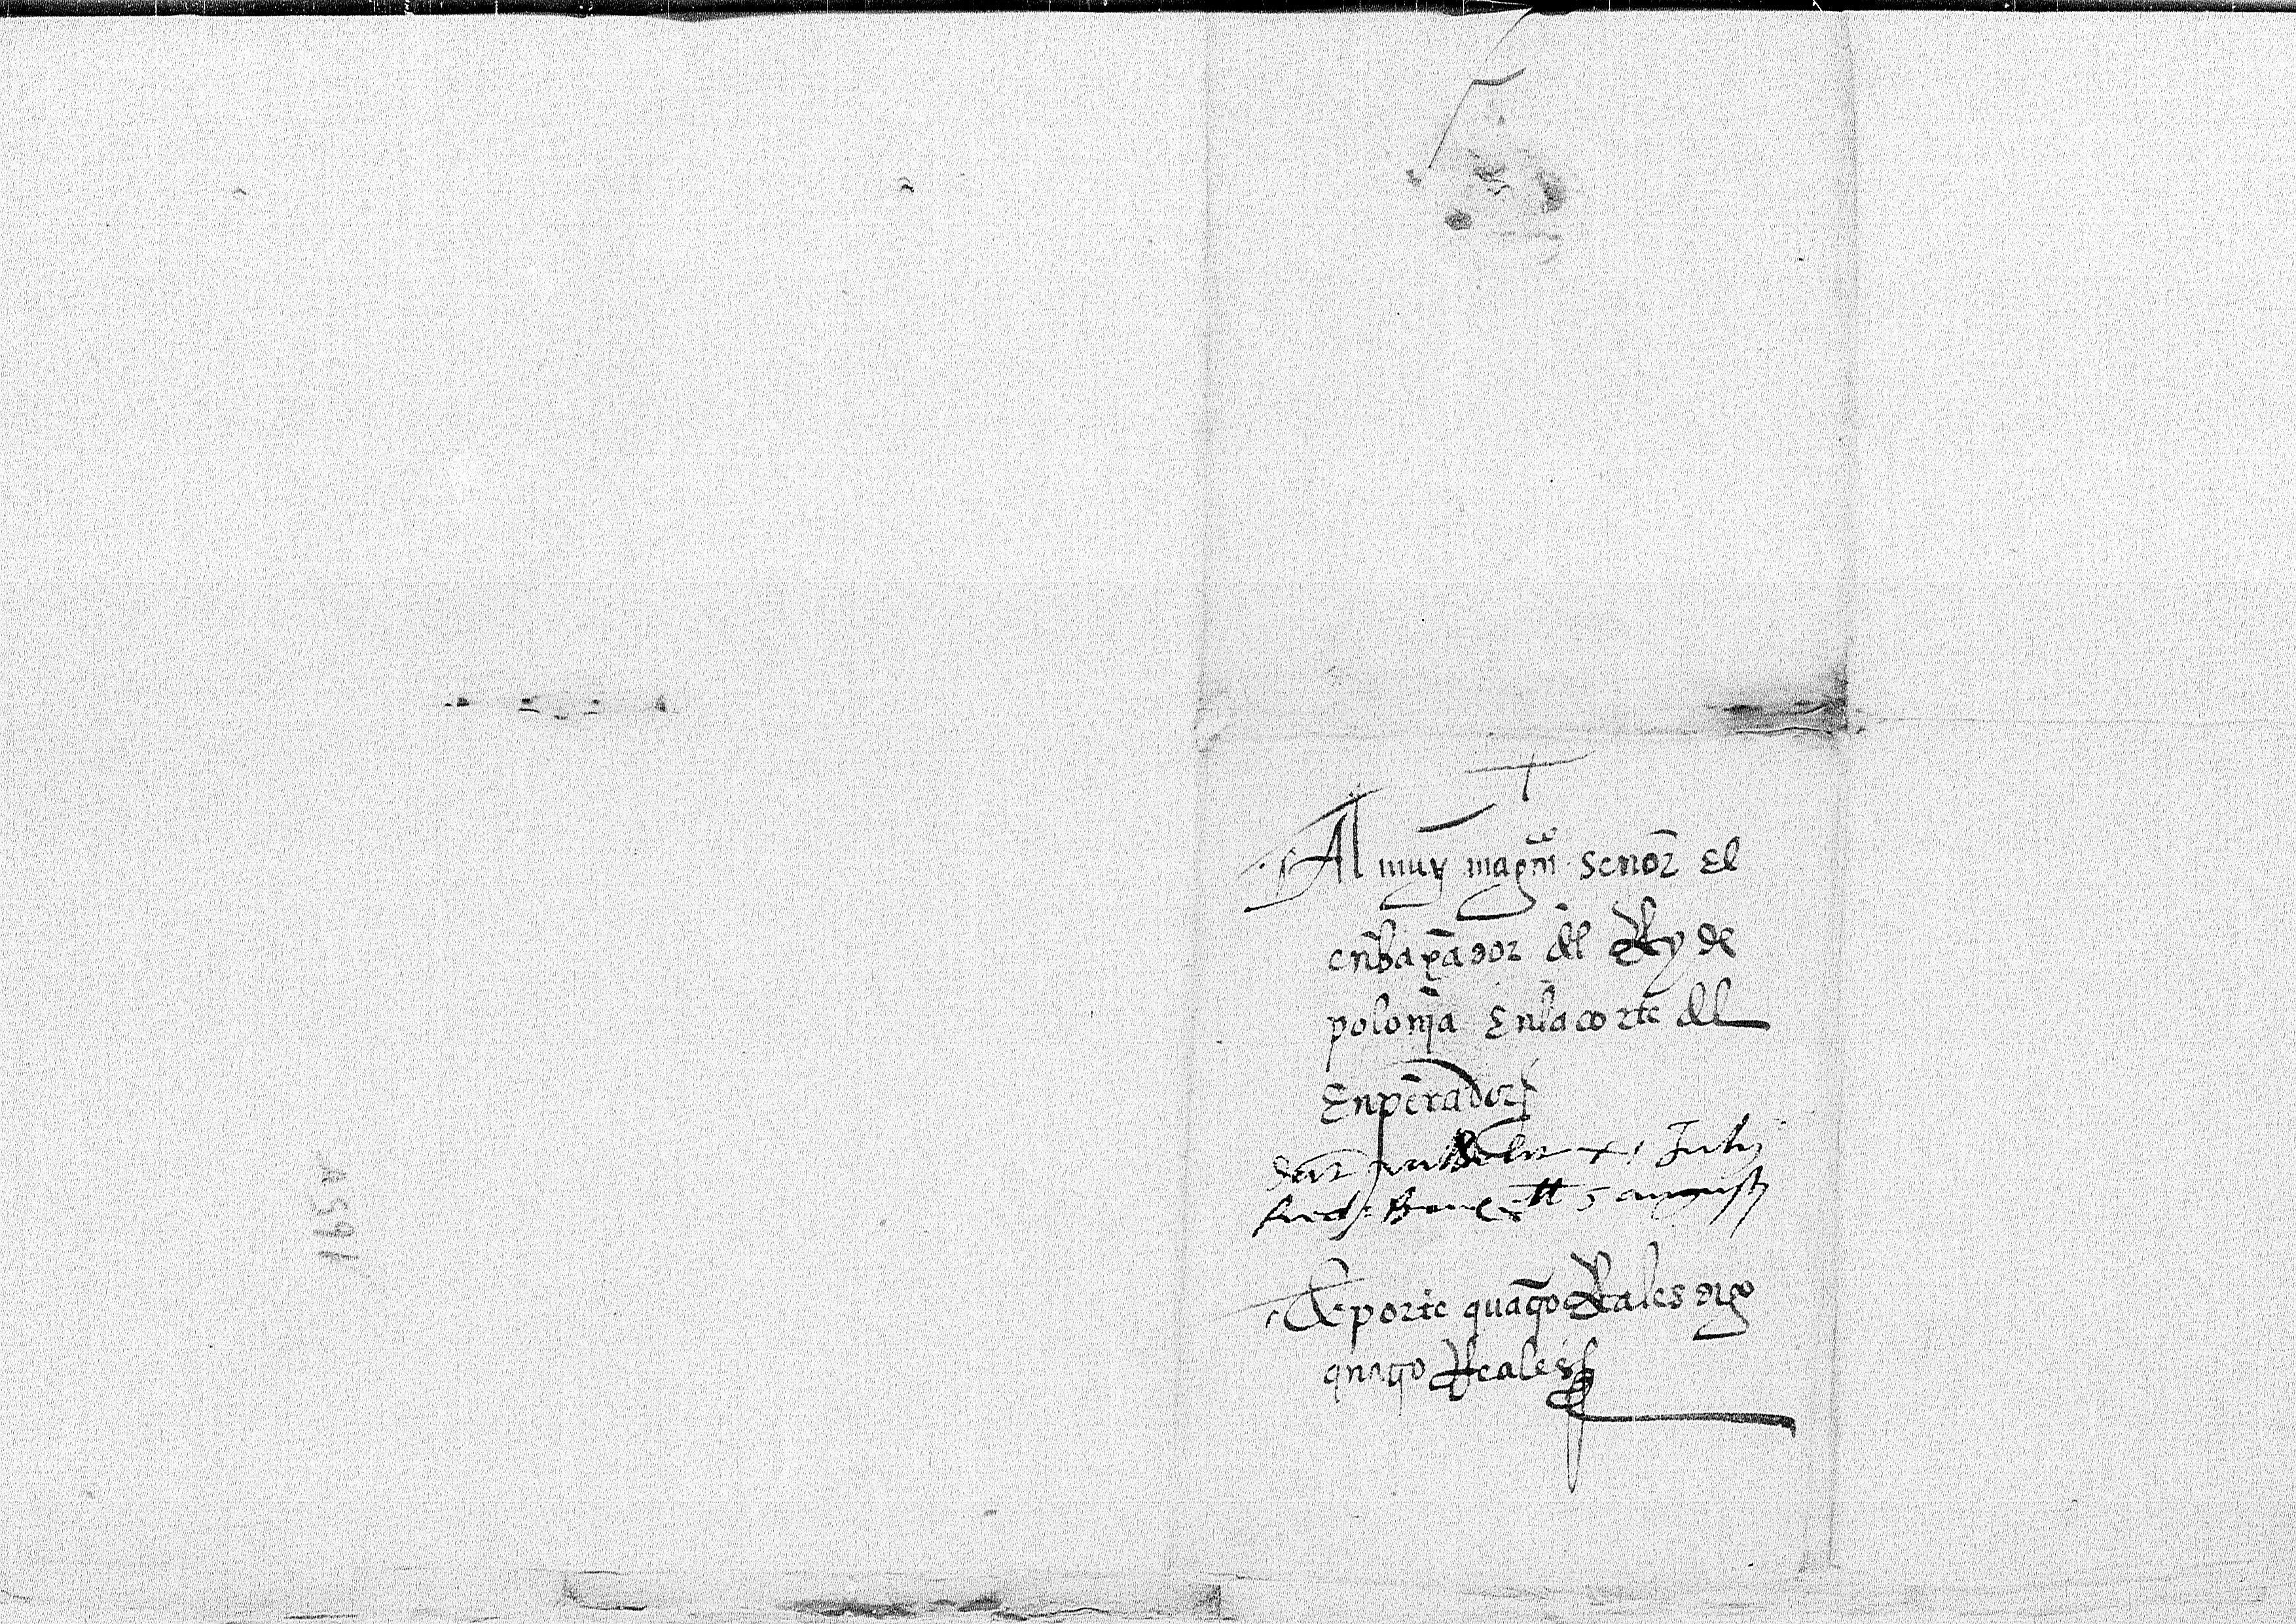 +
Al muy magco señor El
enbaxador del Rey de
polonia En la corte del
Enperador
xi Julij
5 augusti
De porte quatro Reales digo
quatro Reales